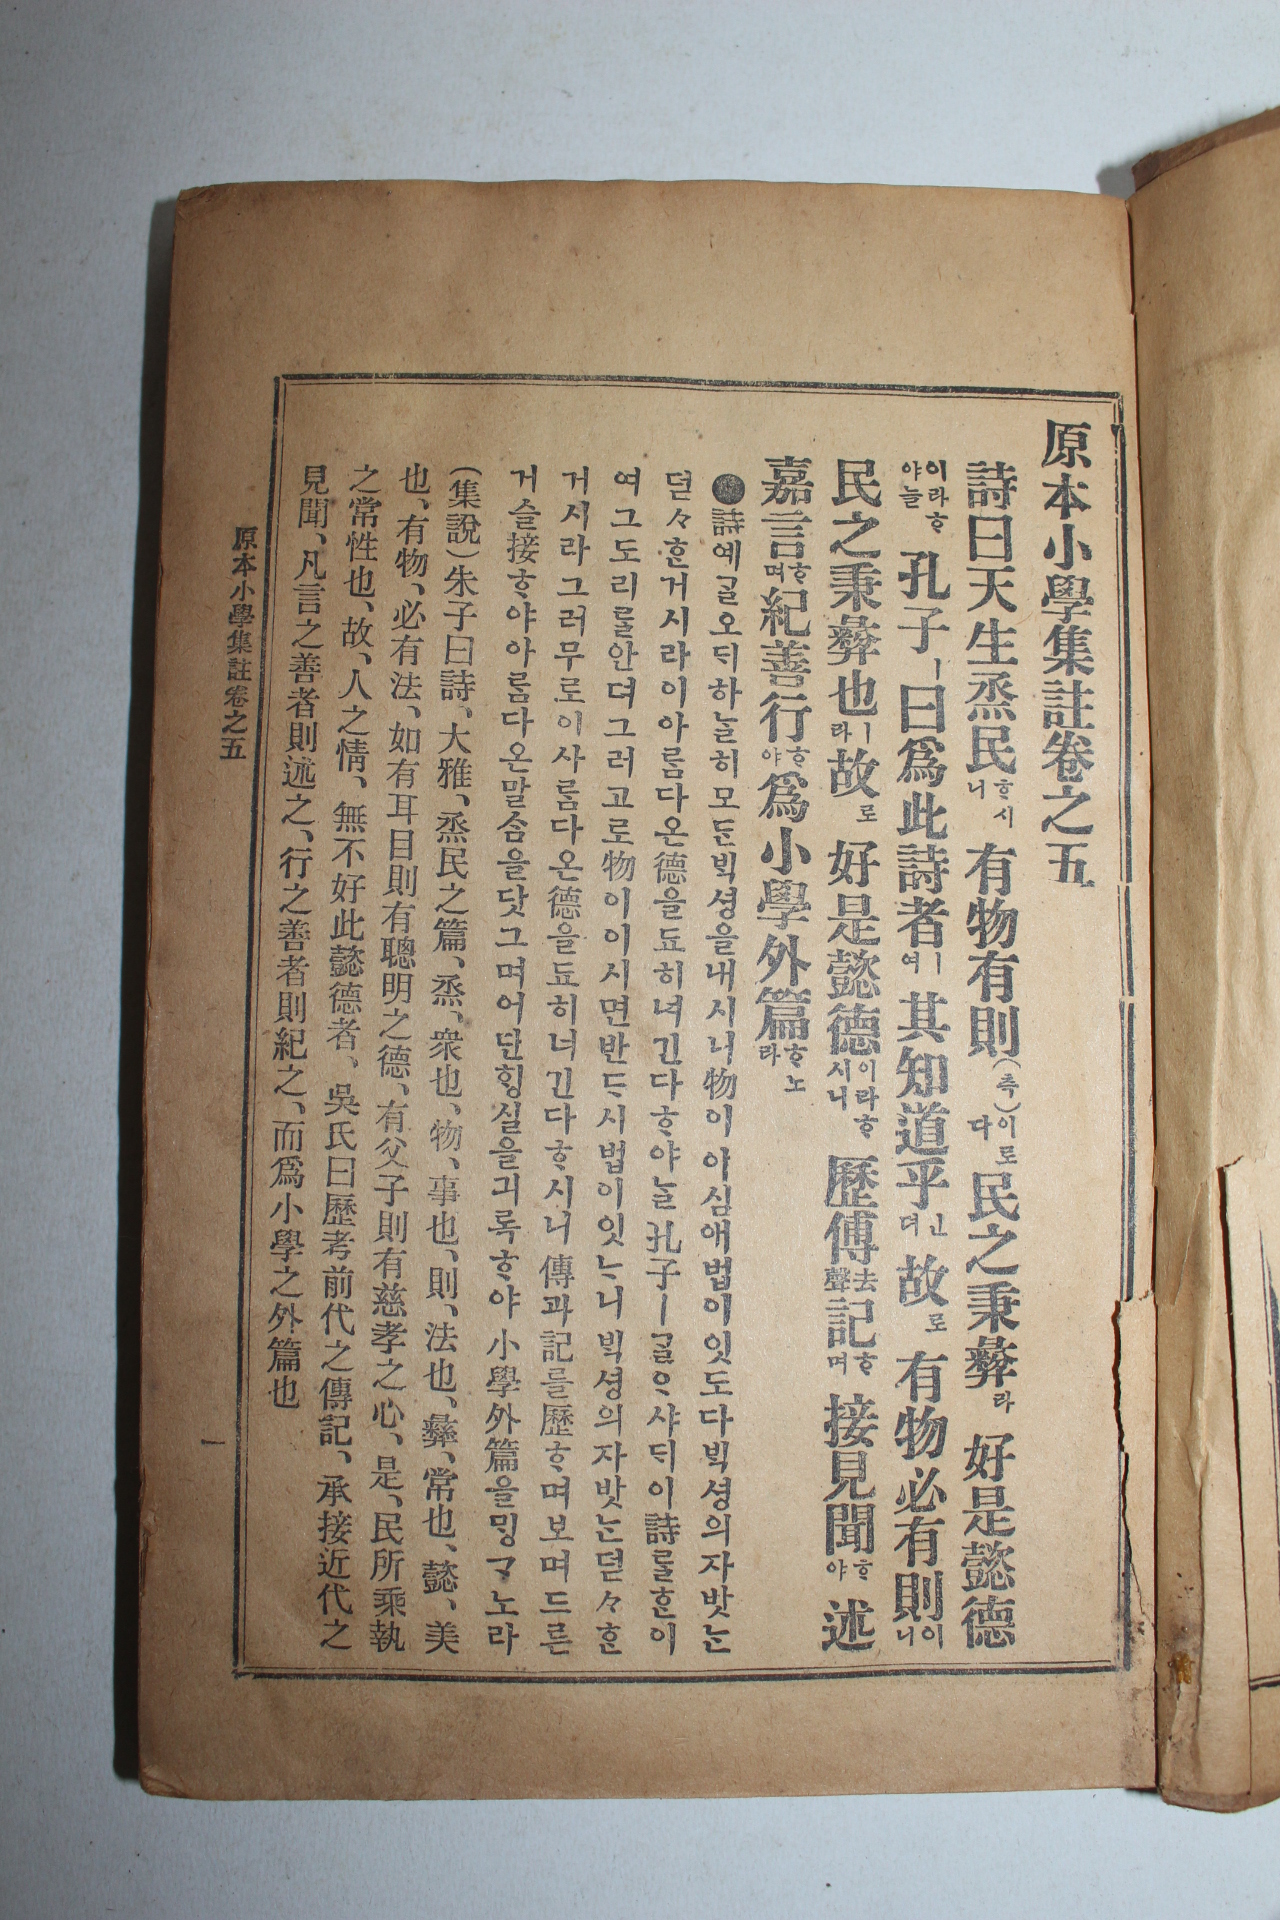 原本小學集註卷之五
詩曰天生烝民ᄒᆞ시니 有物有則(측)이로다 民之秉彝라 好是懿德
이라ᄒᆞ야ᄂᆞᆯ 孔子ㅣ曰爲此詩者ㅣ여 其知道乎ㄴ뎌 故로 有物必有則이니
民之秉彝也ㅣ라 故로 好是懿德이라ᄒᆞ시니 歷傳去聲記ᄒᆞ며 接見聞ᄒᆞ야 述
嘉言ᄒᆞ며 紀善行ᄒᆞ야 爲小學外篇ᄒᆞ노라
●詩예ᄀᆞᆯ오ᄃᆡ하ᄂᆞᆯ히모ᄃᆞᆫᄇᆡᆨ셩을내시니物이이심애법이잇도다ᄇᆡᆨ셩의자밧ᄂᆞᆫ
덛々ᄒᆞᆫ거시라이아ᄅᆞᆷ다온德을됴히녀긴다ᄒᆞ야ᄂᆞᆯ孔子ㅣᄀᆞᆯᄋᆞ샤ᄃᆡ이詩ᄅᆞᆯᄒᆞᆫ이
여그도리ᄅᆞᆯ안뎌그러고로物이이시면반ᄃᆞ시법이잇ᄂᆞ니ᄇᆡᆨ셩의자밧ᄂᆞᆫ덛々ᄒᆞᆫ
거시라그러무로이사ᄅᆞᆷ다온德을됴히너긴다ᄒᆞ시니傳과記를歷ᄒᆞ며보며드른
거슬接ᄒᆞ야아ᄅᆞᆷ다온말ᄉᆞᆷ을닷그며어딘ᄒᆡᆼ실을긔록ᄒᆞ야小學外篇을ᄆᆡᆼᄀᆞ노라
(集說)朱子曰詩、大雅、烝民之篇、烝、衆也、物、事也、則、法也、彝、常也、懿、美
也、有物、必有法、如有耳目則有聰明之德、有父子則有慈孝之心、是、民所秉執
之常性也、故、人之情、無不好此懿德者、吳氏曰歷考前代之傳記、承接近代之
見聞、凡言之善者則述之、行之善者則紀之、而爲小學之外篇也
原本小學集註卷之五
一